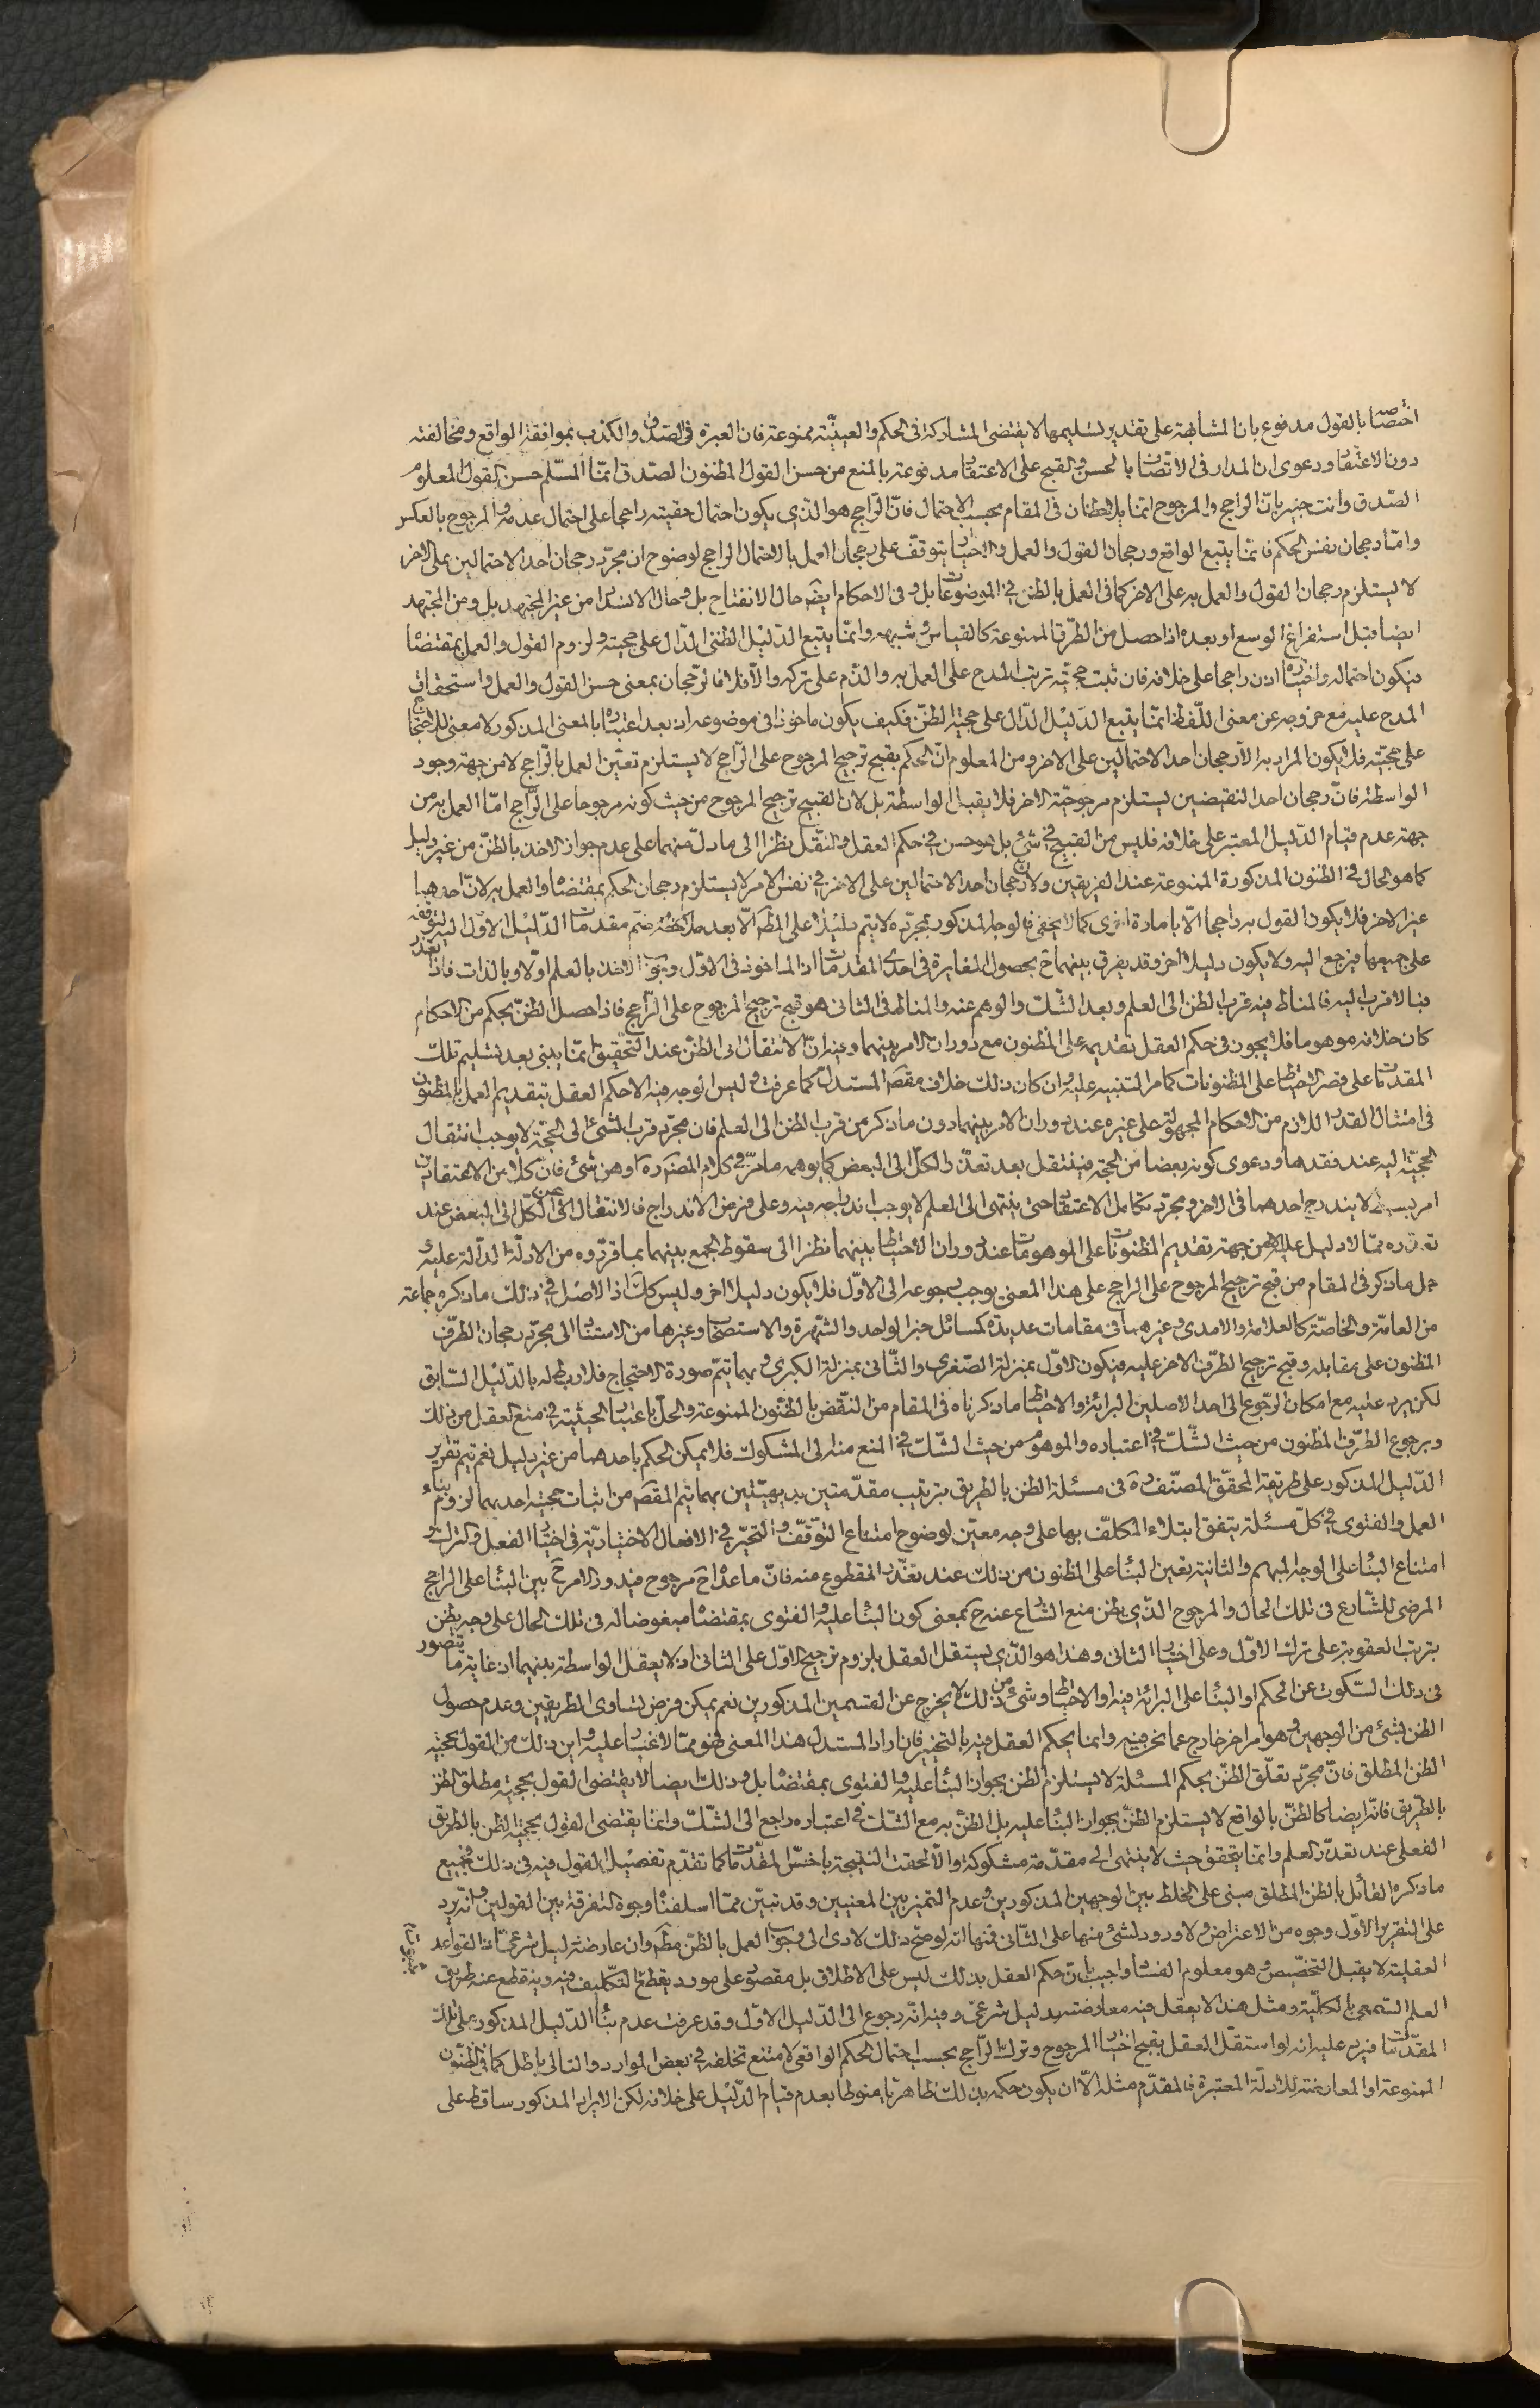 اختصا بالقول مدفوع بان المشابهة على تقدير تسليمها لا يقتضى المشاركة فى الحكم والعينيّة ممنوعة فان العبرة فى الصّدق والكذب بموافقة الواقع ومخالفته
دون الاعتقاد ودعوى ان المدار فى الاتّصاف بالحسن والقبح على الاعتقاد مدفوعة بالمنع من حسن القول المظنون الصّدق انمّا المسّلم حسن القول المعلوم
الصّدق وانت خبير بانّ الراجح والمرجوح انما يلاحظان فى المقام بحسب الاحتمال فانّ الرّاجح هو الّذى يكون احتمال حقيته راجحا على احتمال عدمه والمرجوح بالعكس
وامّا رجحان نفس الحكم فانمّا يتبع الواقع ورجحان القول والعمل والاختيار يتوقّف على رجحان العمل بالاحتمال الراجح لوضوح ان مجرّد رجحان احد الاحتمالين على الاخر
لا يستلزم رجحان القول والعمل به على الاخر كما فى العمل بالظن في الموضوعات بل وفى الاحكام ايضه حال الانفتاح بل وحال الانسداد من غير المجتهد بل ومن المجتهد
ايضا قبل استفراغ الوسع او بعده اذا حصل من الطّرق الممنوعة كالقياس وشبهه وانمّا يتبع الدّليل الظنّى الدّال على حجيته ولزوم القول والعمل بمقتضاه
فيكون احتماله واختياره اذن راجحا على خلافه فان ثبت حجيّته ترتب المدح على العمل به والذّم على تركه والّا فلا فالرّجحان بمعنى حسن القول والعمل واستحقاق
المدح عليه مع خروجه عن معنى اللّفظ انمّا يتبع الدّليل الدّال على حجيّة الظنّ فكيف يكون ماخوذا فى موضوعه اذ بعد اعتباره بالمعنى المذكور لا معنى للاحتجاج
على حجيّته فلا يكون المراد به الّا رجحان احد الاحتمالين على الاخر ومن المعلوم انّ الحكم بقبح ترجيح المرجوح على الرّاجح لا يستلزم تعيّن العمل بالرّاجح لا من جهة وجود
الواسطة فانّ رجحان احد النقيضين يستلزم مرجوحيّة الاخر فلا يقبل الواسطة بل لانّ القبيح ترجيح المرجوح من حيث كونه مرجوحا على الرّاجح امّا العمل به من
جهة عدم قيام الدّليل المعتبر على خلافه فليس من القبيح في شئ بل هو حسن في حكم العقل والنّقل نظرا الى ما دلّ منهما على عدم جواز الاخذ بالظنّ من غير دليل
كما هو الحال في الظنون المذكورة الممنوعة عند الفريقين ولانّ رجحان احد الاحتمالين على الاخر في نفس الامر لا يستلزم رجحان الحكم بمقتضاه والعمل به لانّ احدهما
غير الاخر فلا يكون القول به راجحا الّا بامارة اخرى كما لا يخفى فالوجه المذكور بمجرّده لا يتم دليلا على المطه الّا بعد ملاحظة ضمّ مقدمات الدّليل الاوّل اليه لتوقفه
على جميعها فيرجع اليه ولا يكون دليلا اخر وقد يفرق بينهما ح بحصول المغايرة فى احدى المقدمات اذ الماخوذ فى الاوّل وجوب الاخذ بالعلم اوّلا وبالذات فاذا تعذر
فبالاقرب اليه فالمناط فيه قرب الظن الى العلم وبعد الشّك والوهم عنه والمناط فى الثانى هو قبح ترجيح المرجوح على الرّاجح فاذا حصل الظنّ بحكم من الاحكام
كان خلافه موهوما فلا يجوز فى حكم العقل تقديمه على المظنون مع دوران الامر بينهما وفيه انّ الانتقال الى الظنّ عند التحقيق انمّا يبنى بعد تسليم تلك
المقدمات على قصر الاحتياط على المظنونات كما مر التنبيه عليه وان كان ذلك خلاف مقصه المستدل كما عرفت وليس الوجه فيه الّا حكم العقل بتقديم العمل بالمظنون
فى امتثال القدر اللازم من الاحكام المجهولة على غيره عند دوران الامر بينهما دون ما ذكر من قرب الظن الى العلم فان مجرّد قرب الشئ الى الحجّة لا يوجب انتقال
الحجيّة اليه عند فقدها ودعوى كونه بعضا من الحجّة فينتقل بعد تعذّر الكلّ الى البعض كما يوهمه ما مرّ في كلام المصه ره اوهن شئ فان كلا من الاعتقادين
امر بسيط لا يندرج احدهما فى الاخر ومجرّد تكامل الاعتقاد حتى ينتهى الى العلم لا يوجب اندراجه فيه وعلى فرض الاندراج فالانتقال من الكّل الى البعض عند
تعذره ممّا لا دليل عليه الّا من جهة تقديم المظنونات على الموهومات عند دوران الاحتياط بينهما نظرا الى سقوط الجمع بينهما بما قرّروه من الادلّة الدّالة عليه
حمل ما ذكر فى المقام من قبح ترجيح المرجوح على الراجح على هذا المعنى يوجب رجوعه الى الاوّل فلا يكون دليلا اخر وليس كك اذ الاصل في ذلك ما ذكره جماعة
من العامّة والخاصّة كالعلامة والامدى وغيرهما فى مقامات عديدة كمسائل خبر الواحد والشّهرة والاستصحاب وغيرها من الاستناد الى مجرّد رجحان الطرّف
المظنون على مقابله وقبح ترجيح الطرّف الاخر عليه فيكون الاوّل بمنزلة الصّغرى والثّانى بمنزلة الكبرى وبهما يتمّ صورة الاحتجاج فلا ربط له بالدّليل السّابق
لكن يرد عليه مع امكان الرّجوع الى احد الاصلين البرائة والاحتياط ما ذكرناه فى المقام من النّقض بالظنّون الممنوعة والحلّ باعتبار الحيثيّة في منع العقل من ذلك
وبرجوع الطّرف المظنون من حيث الشّك في اعتباره والموهوم من حيث الشّك في المنع منه الى المشكوك فلا يمكن الحكم باحدهما من غير دليل نعم يتم تقرير
الدّليل المذكور على طريقة المحقّق المصنّف ره فى مسئلة الظن بالطريق بترتيب مقدّمتين بديهيّتين بهما يتم المقصه من اثبات حجيّة احدهما لزوم بناء
العمل والفتوى في كلّ مسئلة يتفق ابتلاء المكلّف بها على وجه معيّن لوضوح امتناع التوّقف والتحيّر في الافعال الاختياريّة فى اختيار الفعل والترك و
امتناع البناء على الوجه المبهم والثانية تعيّن البناء على المظنون من ذلك عند تعذّر المقطوع منه فانّ ما عداه ح مرجوح فيدور الامر ح بين البناء على الراجح
المرضى للشّارع فى تلك الحال والمرجوح الّذى يظن منع الشّارع عنه ح بمعنى كون البناء عليه والفتوى بمقتضاه مبغوضا له فى تلك الحال على وجه يظن
بترتب العقوبة على ترك الاوّل وعلى اختيار الثانى وهذا هو الّذى يستقل العقل بلزوم ترجيح الاوّل على الثانى اذ لا يعقل الواسطة بينهما اذ غاية ما يتصور
فى ذلك السّكوت عن الحكم او البناء على البرائة فيه او الاحتياط وشئ من ذلك لا يخرج عن القسمين المذكورين نعم يمكن فرض تساوى الطريقين وعدم حصول
الظن بشئ من الوجهين وهو امر اخر خارج عما نحن فيه وانما يحكم العقل فيه بالتخيير فان اراد المستدل هذا المعنى فهو ممّا لا غبار عليه واين ذلك من القول بحجية
الظن المطلق فانّ مجرّد تعلّق الظنّ بحكم المسئلة لا يستلزم الظن بجواز البناء عليه والفتوى بمقتضاه بل وذلك ايضا لا يقتضى القول بحجيّة مطلق الظن
بالطّريق فانّه ايضا كالظنّ بالواقع لا يستلزم الظنّ بجواز البناء عليه بل الظنّ به مع الشّك فى اعتباره راجع الى الشّك وانمّا يقتضى القول بحجيّة الظن بالطريق
الفعلى عند تعذّر العلم وانمّا يتحقق حيث لا ينتهى الى مقدّمة مشكوكة والّا لحقت النّتيجة باخسّ المقدّمات كما تقدّم تفصيل القول فيه فى ذلك فجميع
ما ذكره القائل بالظن المطلق مبنى على الخلط بين الوجهين المذكورين وعدم التميز بين المعنيين وقد تبيّن ممّا اسلفناه وجوه التفرقة بين القولين وانّه يرد
على التقرير الاوّل وجوه من الاعتراض لا ورود لشئ منها على الثّانى فمنها انه لو صحّ ذلك لادى الى وجوب العمل بالظنّ مطه وان عارضه دليل شرعىّ اذ القواعد
العقلية لا يقبل التخصّيص وهو معلوم الفساد واجيب بانّ حكم العقل بذلك ليس على الاطلاق بل مقصور على مورد يقطع بالتّكليف فيه وينقطع عنه طريق
العلم السّمعى بالكليّة ومثل هذا لا يعقل فيه معارضته بدليل شرعىّ وفيه انّه رجوع الى الدّليل الاوّل وقد عرفت عدم بناء الدّليل المذكور على تلك
المقدّمات فيرد عليه انه لو استقلّ العقل بقبح اختيار المرجوح وترك الرّاجح بحسب احتمال الحكم الواقعى لامتنع تخلفه في بعض الموارد والتالى باطل كما فى الظّنون
الممنوعة او المعارضة للادلّة المعتبرة فالمقدّم مثله الّا ان يكون حكمه بذلك ظاهريّا منوطا بعدم قيام الدّليل على خلافه لكن الايراد المذكور ساقط على